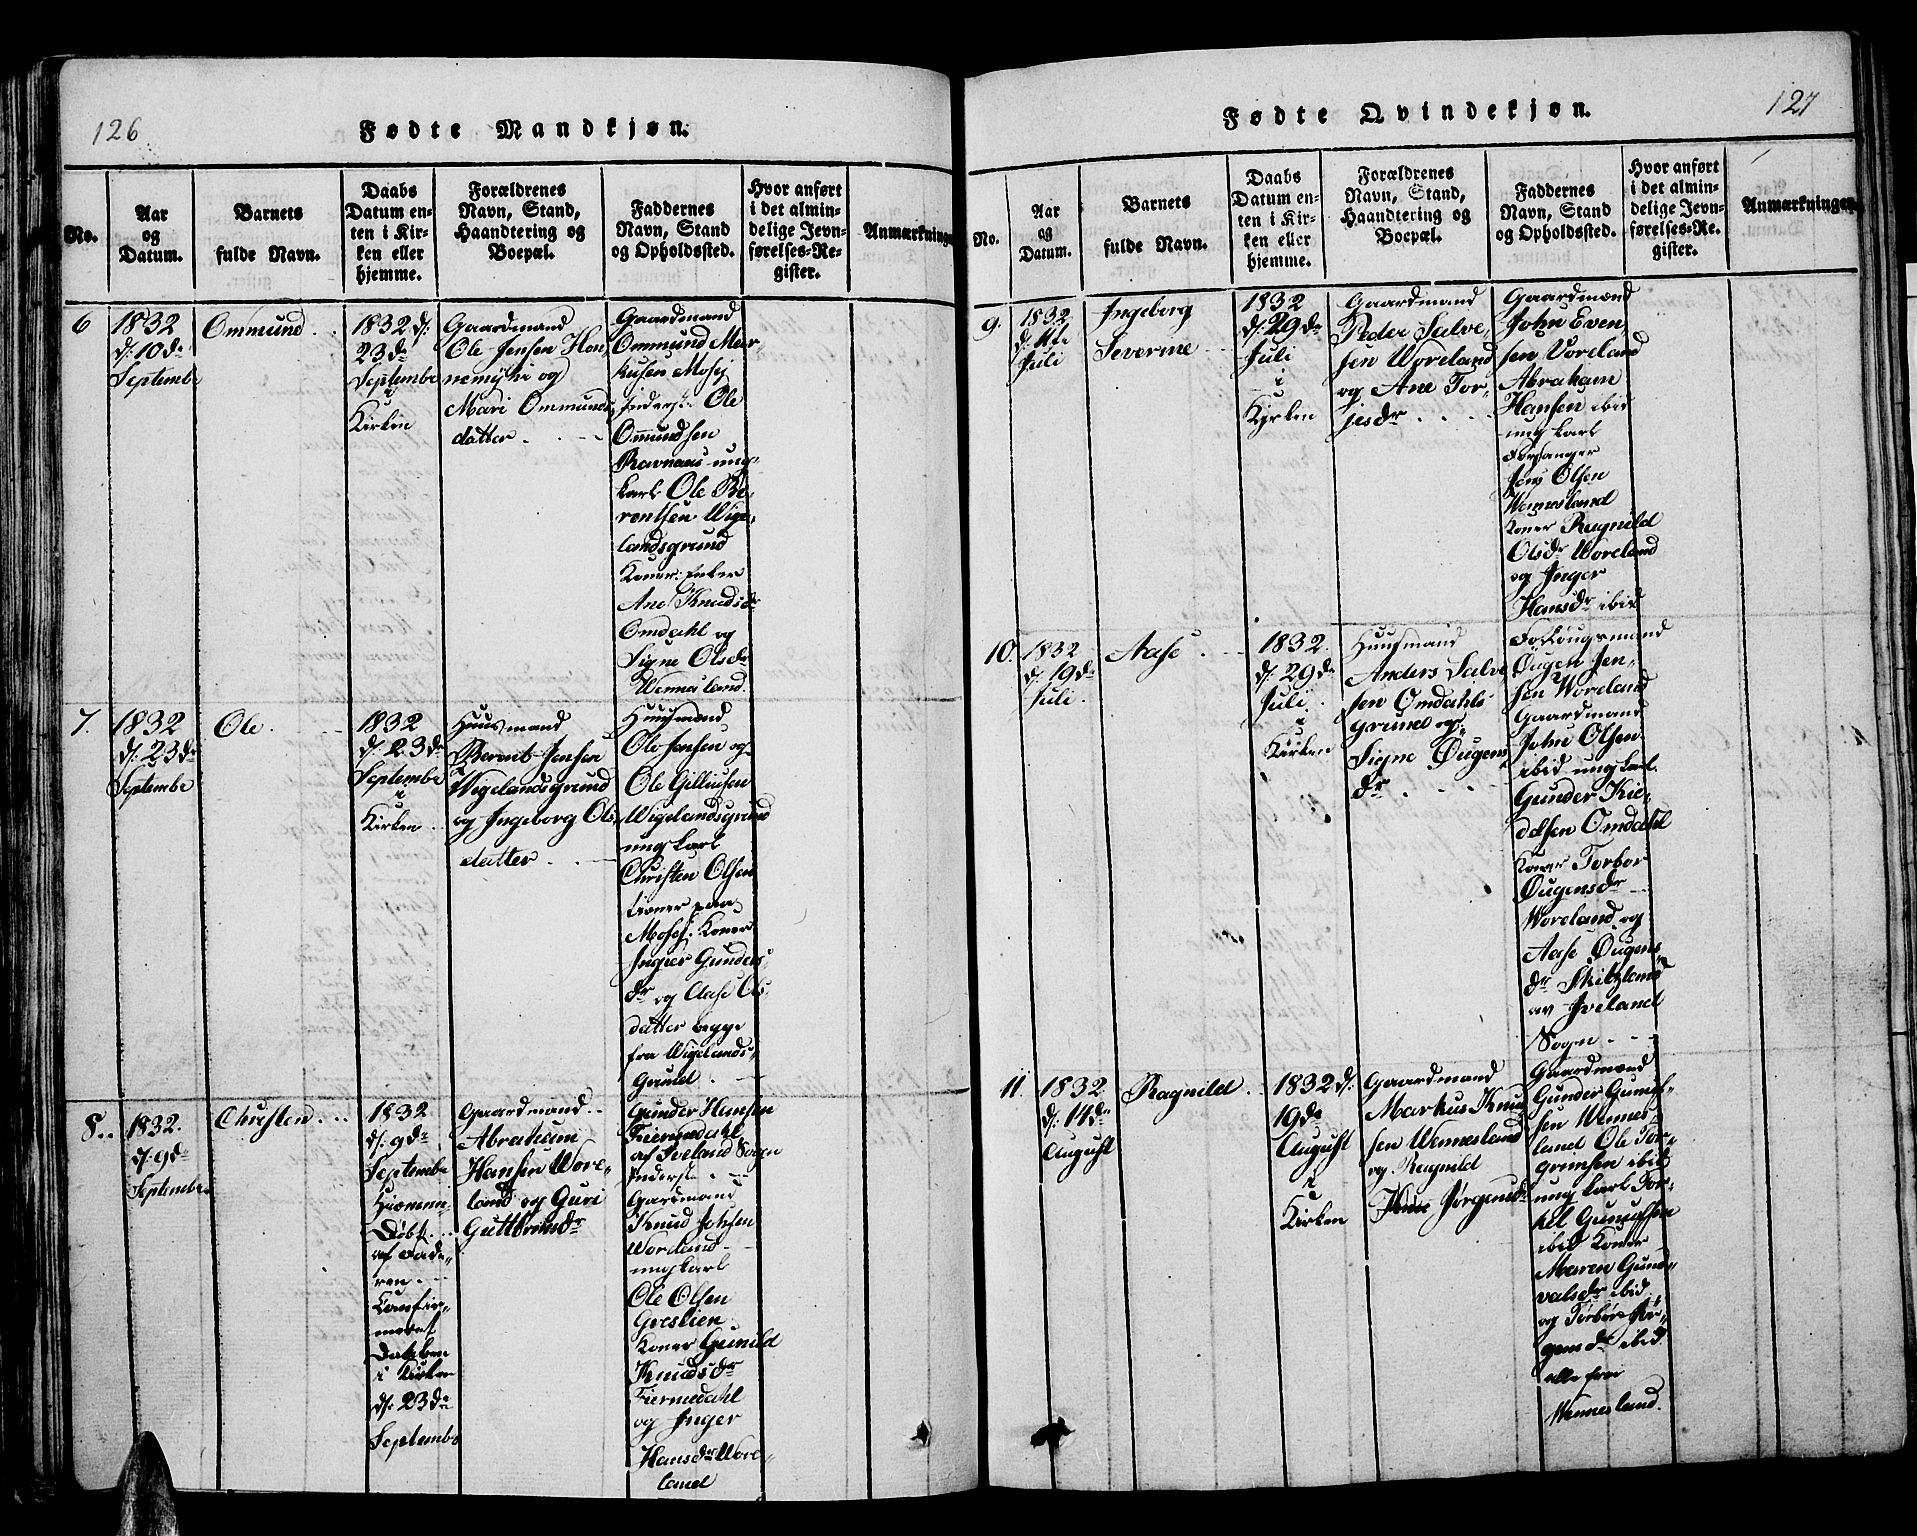 126
Fødte Mandkjøn.
No.
Aar
og
Datum.
Barnets
fulde Navn.
Daabs
Datum en-
ten i Kir-
ken eller
hjemme.
Forældrenes
Navn, Stand,
Haandtering og
Boepæl.
Faddernes
Navn, Stand
og Opholdssted.
Hvor anført
i det almin-
delige Jevn-
førelses-Re-
gister.
Anmærkninger
6
1832
d: 10de
Septembe
Ommund
1832 d:
23de
Septembe
i
Kirken
Gaardmand
Ole Jensen Hon
nemyhr og
Mari Ommunds
datter
Gaardmand
Ommund Mar
kusen Mosej
Inderst: Ole
Ommundsen
Ravnaas ung-
karl Ole Be-
rentsen Wige-
landsgrund
Koner: Enke
Ane Knudsdr
Omdahl og
Signe Olsdr
Wennesland.
7.
1832
d: 23de
Septembe
Ole
1832
d: 23de
Septembe
i
Kirken
Huusmand
Bernt Jensen
Wigelandsgrund
og Ingeborg Ols
datter
Huusmand
Ole Jensen og
Ole Gilliusen
Wigelandsgrund
ungkarl
Christen Olsen
tioner paa
Mosej. Koner
Inger Gunders
dr og Aase Ols
datter begge
fra Wigelands
Grund
8..
1832.
d: 9de
Septembe
Christen
1832
d: 9de
Septembe
Hiemme
Døbt
af Fade-
ren
Confir-
meret
Daaben
i Kirken
d: 23de
Septembe
Gaardmand
Abraham
Hansen Wore-
land og Guri
Guttormsdr
Gunder Hansen
Fiermedahl
af Iveland Sogn
Inderst
Gardmand
Knud Johsen
Worland
ungkarl
Ole Olsen
Greslien
Koner Gunild
Knudsdr
Fiermedahl
og Inger
Hansdr Wore-
land
127
Fødte Qvindekjøn.
No.
Aar
og
Datum.
Barnets
fulde Navn.
Daabs
Datum en-
ten i Kir-
ken eller
hjemme.
Forældrenes
Navn, Stand,
Haandtering og
Boepæl.
Faddernes
Navn, Stand
og Opholdssted.
Hvor anført
i det almin-
delige Jevn-
førelses-Re-
gister.
Anmærkninger
9.
1832
Juli
Ingeborg
Severine
1832
d: 29de
Juli
i
Kirken
Gaardmand
Peder Salve-
sen Woreland
og Ane Tor-
jesdr
Gaardmænd
John Even-
sen Voreland
Abraham
Hansen ibid
ungkarl
Forsanger
Jens Olsen
Wennesland
Koner Ragnild
Olsdr Woreland
og Inger
Hansdr ibid
10.
1832
d: 19de
Juli
Aase
1832.
d: 29de
Juli
i
Kirken
Huusmand
Anders Salve
sen Omdahls
grund og
Signe Øugens
dr
Forlougsmand
Øugen Jen-
sen Woreland
Gaardmand
John Olsen
ibid ungkarl
Gunder Kie-
delsen Omdahl
Koner Torbor
Øugensdr
Woreland og
Aase Øugens
dr Skitzland
av Iveland
Sogn
11.
1832
d: 14de
August
Ragnild
1832 d:
19de
August
i
Kirken
Gaardmand
Markus Knud
sen Wennesland
og Ragnild
Jørgensdr
Gaardmænd
Gunder Gunuf-
sen Wennes
land Ole Tor-
grimsen ibid
ungkarl Tor-
kel Gunuffsen
ibid Koner
Maren Gund-
valsdr ibid
og Torbor Jør-
gensdr ibid
alle fra
Wennesland.